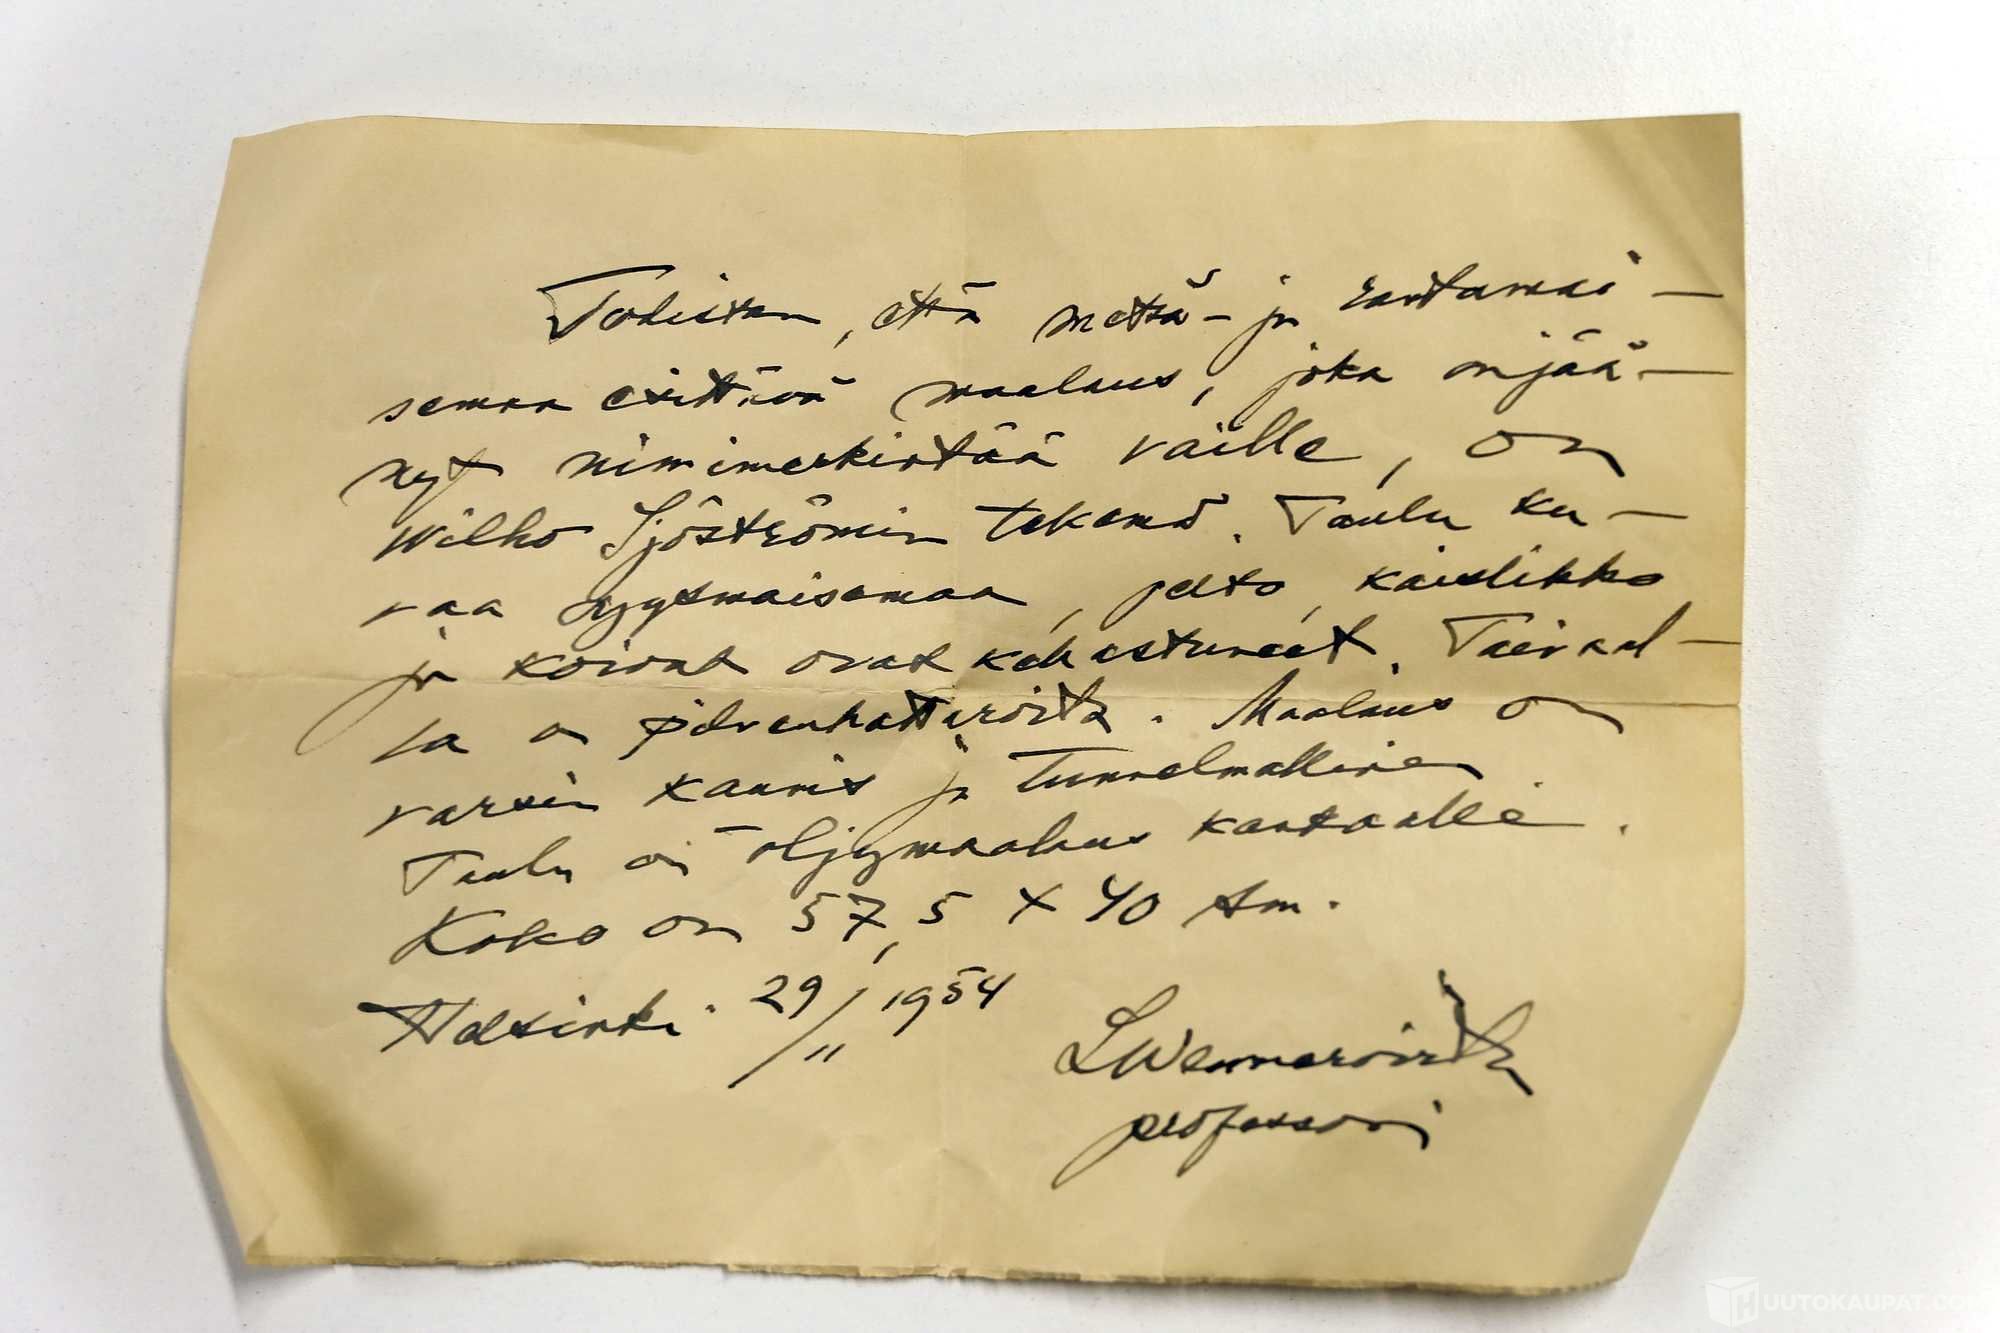 Todistan, että metsä- ja rantamai-
semaa esittävä maalaus, joka on jää-
nyt nimimerkintää vaille, on
Wilho Sjöströmin tekemä. Taulu ku-
vaa syysmaisemaa, pelto, kaislikko
ja koivut ovat kellastuneet. Taivaal-
la on pilvenhattaroita. Maalaus on
varsin kaunis ja tunnelmallinen.
Taulu on öljymaalaus kankaalle.
Koko on 57,5 x 40 sm.
Helsinki. 29/11 1954
L Wennervirta
professori
HUUTOKAUPAT.COM